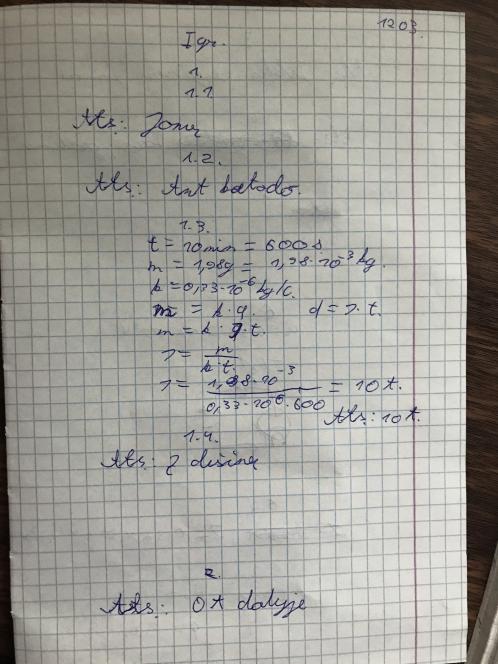 1203.
I gr.
1.
1.1
Ats: Jonų
1.2.
Ats: Ant katodo.
1.3.
t = 10min = 600 s
m = 1,98g = 1,98·10⁻³ kg.
k = 0,33·10⁻⁶ kg/C.
m = k·q. d = I·t.
m = k·I·t.
I = m / k·t.
I = 1,98·10⁻³ / 0,33·10⁻⁶·600 = 10 A.
Ats: 10 A.
1.4.
Ats: Į dešinę
2.
Ats: OA dalyje